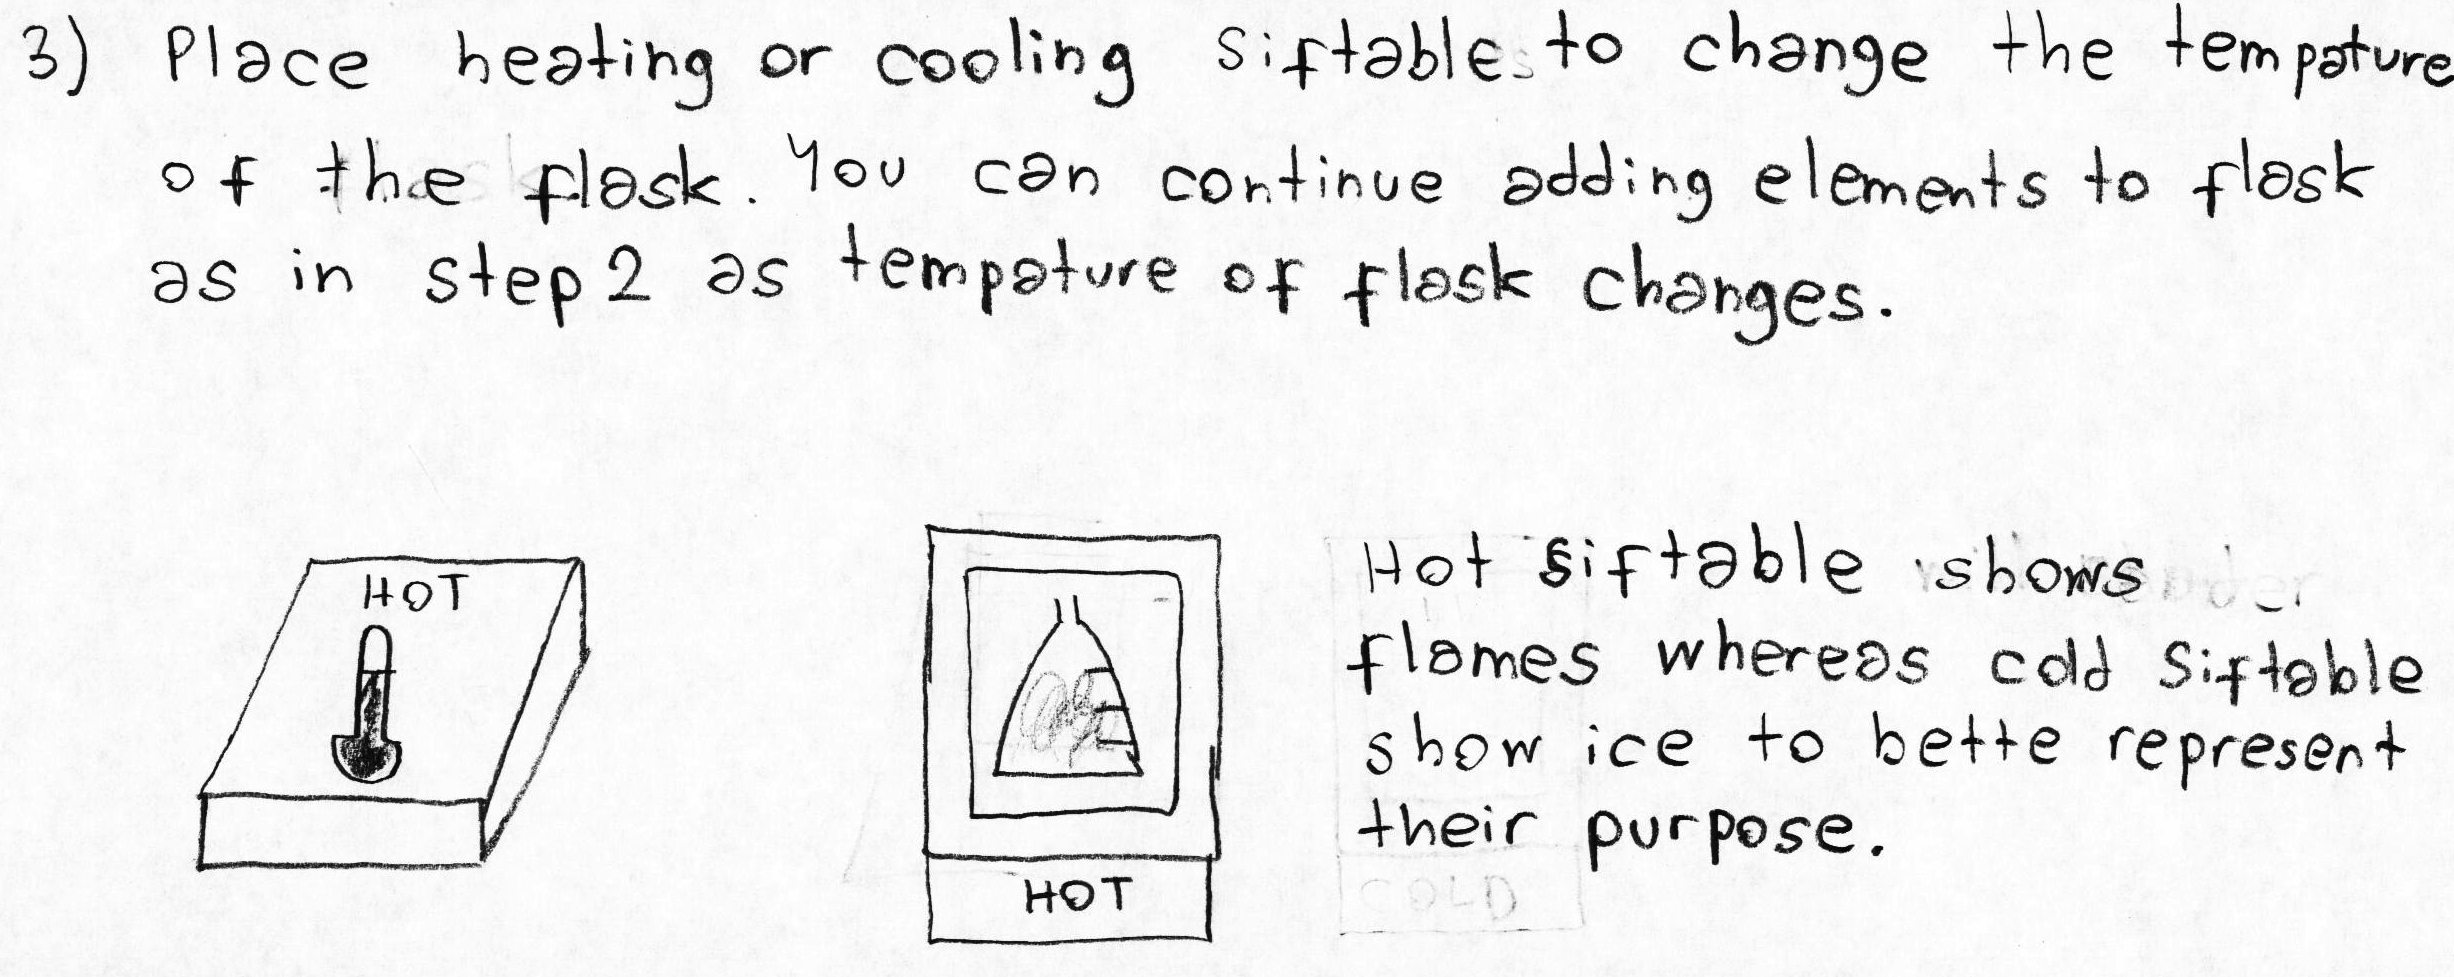 3) Place heating or cooling siftables to change the tempature
of the flask. You can continue adding elements to flask
as in step 2 as tempature of flask changes.
HOT
HOT
Hot siftable shows
flames whereas cold Siftable
show ice to bette represent
their purpose.
COLD